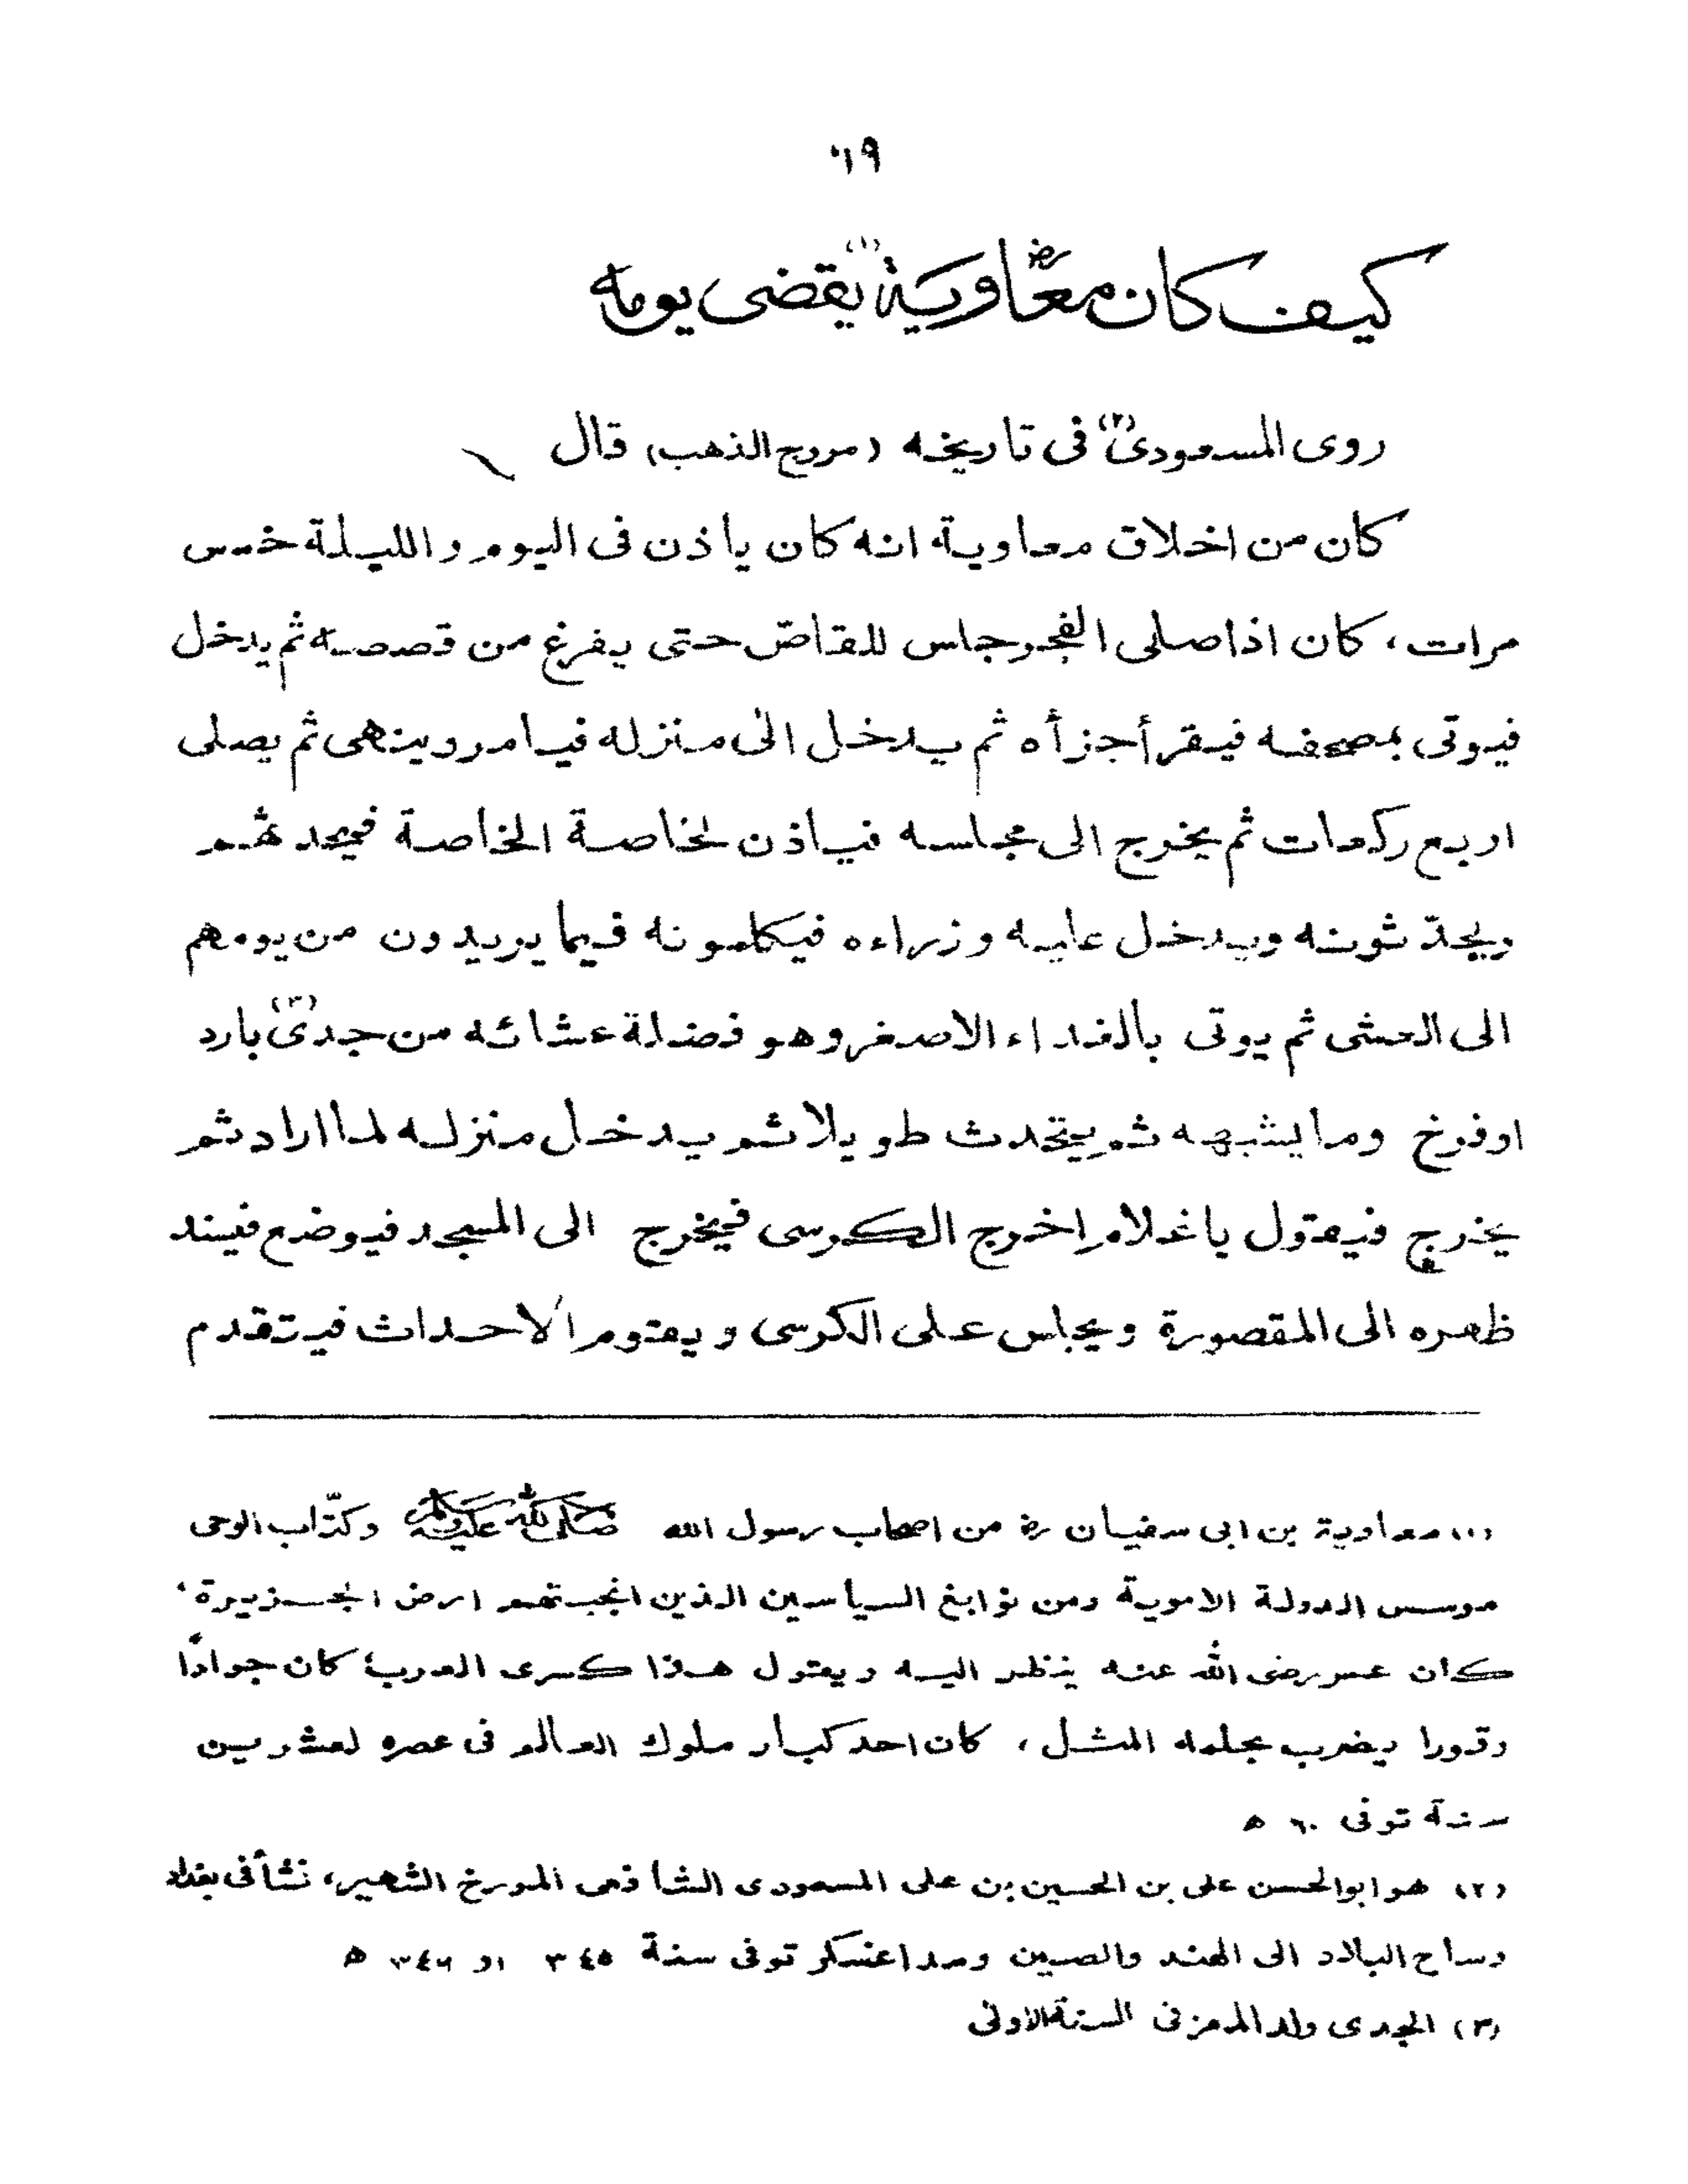 ١٩
كيف كان معاوية رض (١) يقضى يومه
روى المسعودى (٢) فى تاريخه (مروج الذهب) قال
كان من اخلاق معاوية انه كان ياذن فى اليوم والليلة خمس
مرات، كان اذا صلى الفجر جلس للقاصّ حتى يفرغ من قصصه ثم يدخل
فيوتى بمصحفه فيقرأ جزأه ثم يدخل الى منزله فيامر وينهى ثم يصلى
اربع ركعات ثم يخرج الى مجلسه فياذن لخاصة الخاصة فيحدثهم
ويحدّثونه ويدخل عليه وزراءه فيكلمونه فيما يريدون من يومهم
الى العشى ثم يوتى بالغداء الاصغر وهو فضلة عشائه من جدى (٣) بارد
اوفرخ وما يشبهه ثم يتحدث طويلا ثم يدخل منزله لما اراد ثم
يخرج فيقول ياغلام اخرج الكرسى فيخرج الى المسجد فيوضع فيسند
ظهره الى المقصورة ويجلس على الكرسى ويقوم الاحداث فيتقدم
(١) معاوية بن ابى سفيان رض من اصحاب رسول الله صلى الله عليه وسلم وكتّاب الوحى
موسس الدولة الاموية ومن نوابغ السياسين الذين انجبتهم ارض الجزيرة،
كان عمر رضى الله عنه ينظر اليه ويقول هذا كسرى العرب؛ كان جوادًا
وقورا يضرب بحلمه المثل، كان احد كبار ملوك العالم فى عصره لعشرين
سنة توفى ٦٠ ه
(٢) هو ابوالحسن على بن الحسين بن على المسعودى الشافعى المورخ الشهير، نشأ فى بغداد
وساح البلاد الى الهند والصين ومداغسكر توفى سنة ٣٤٥ او ٣٤٦ ه
(٣) الجدى ولد المعز فى السنة الاولى